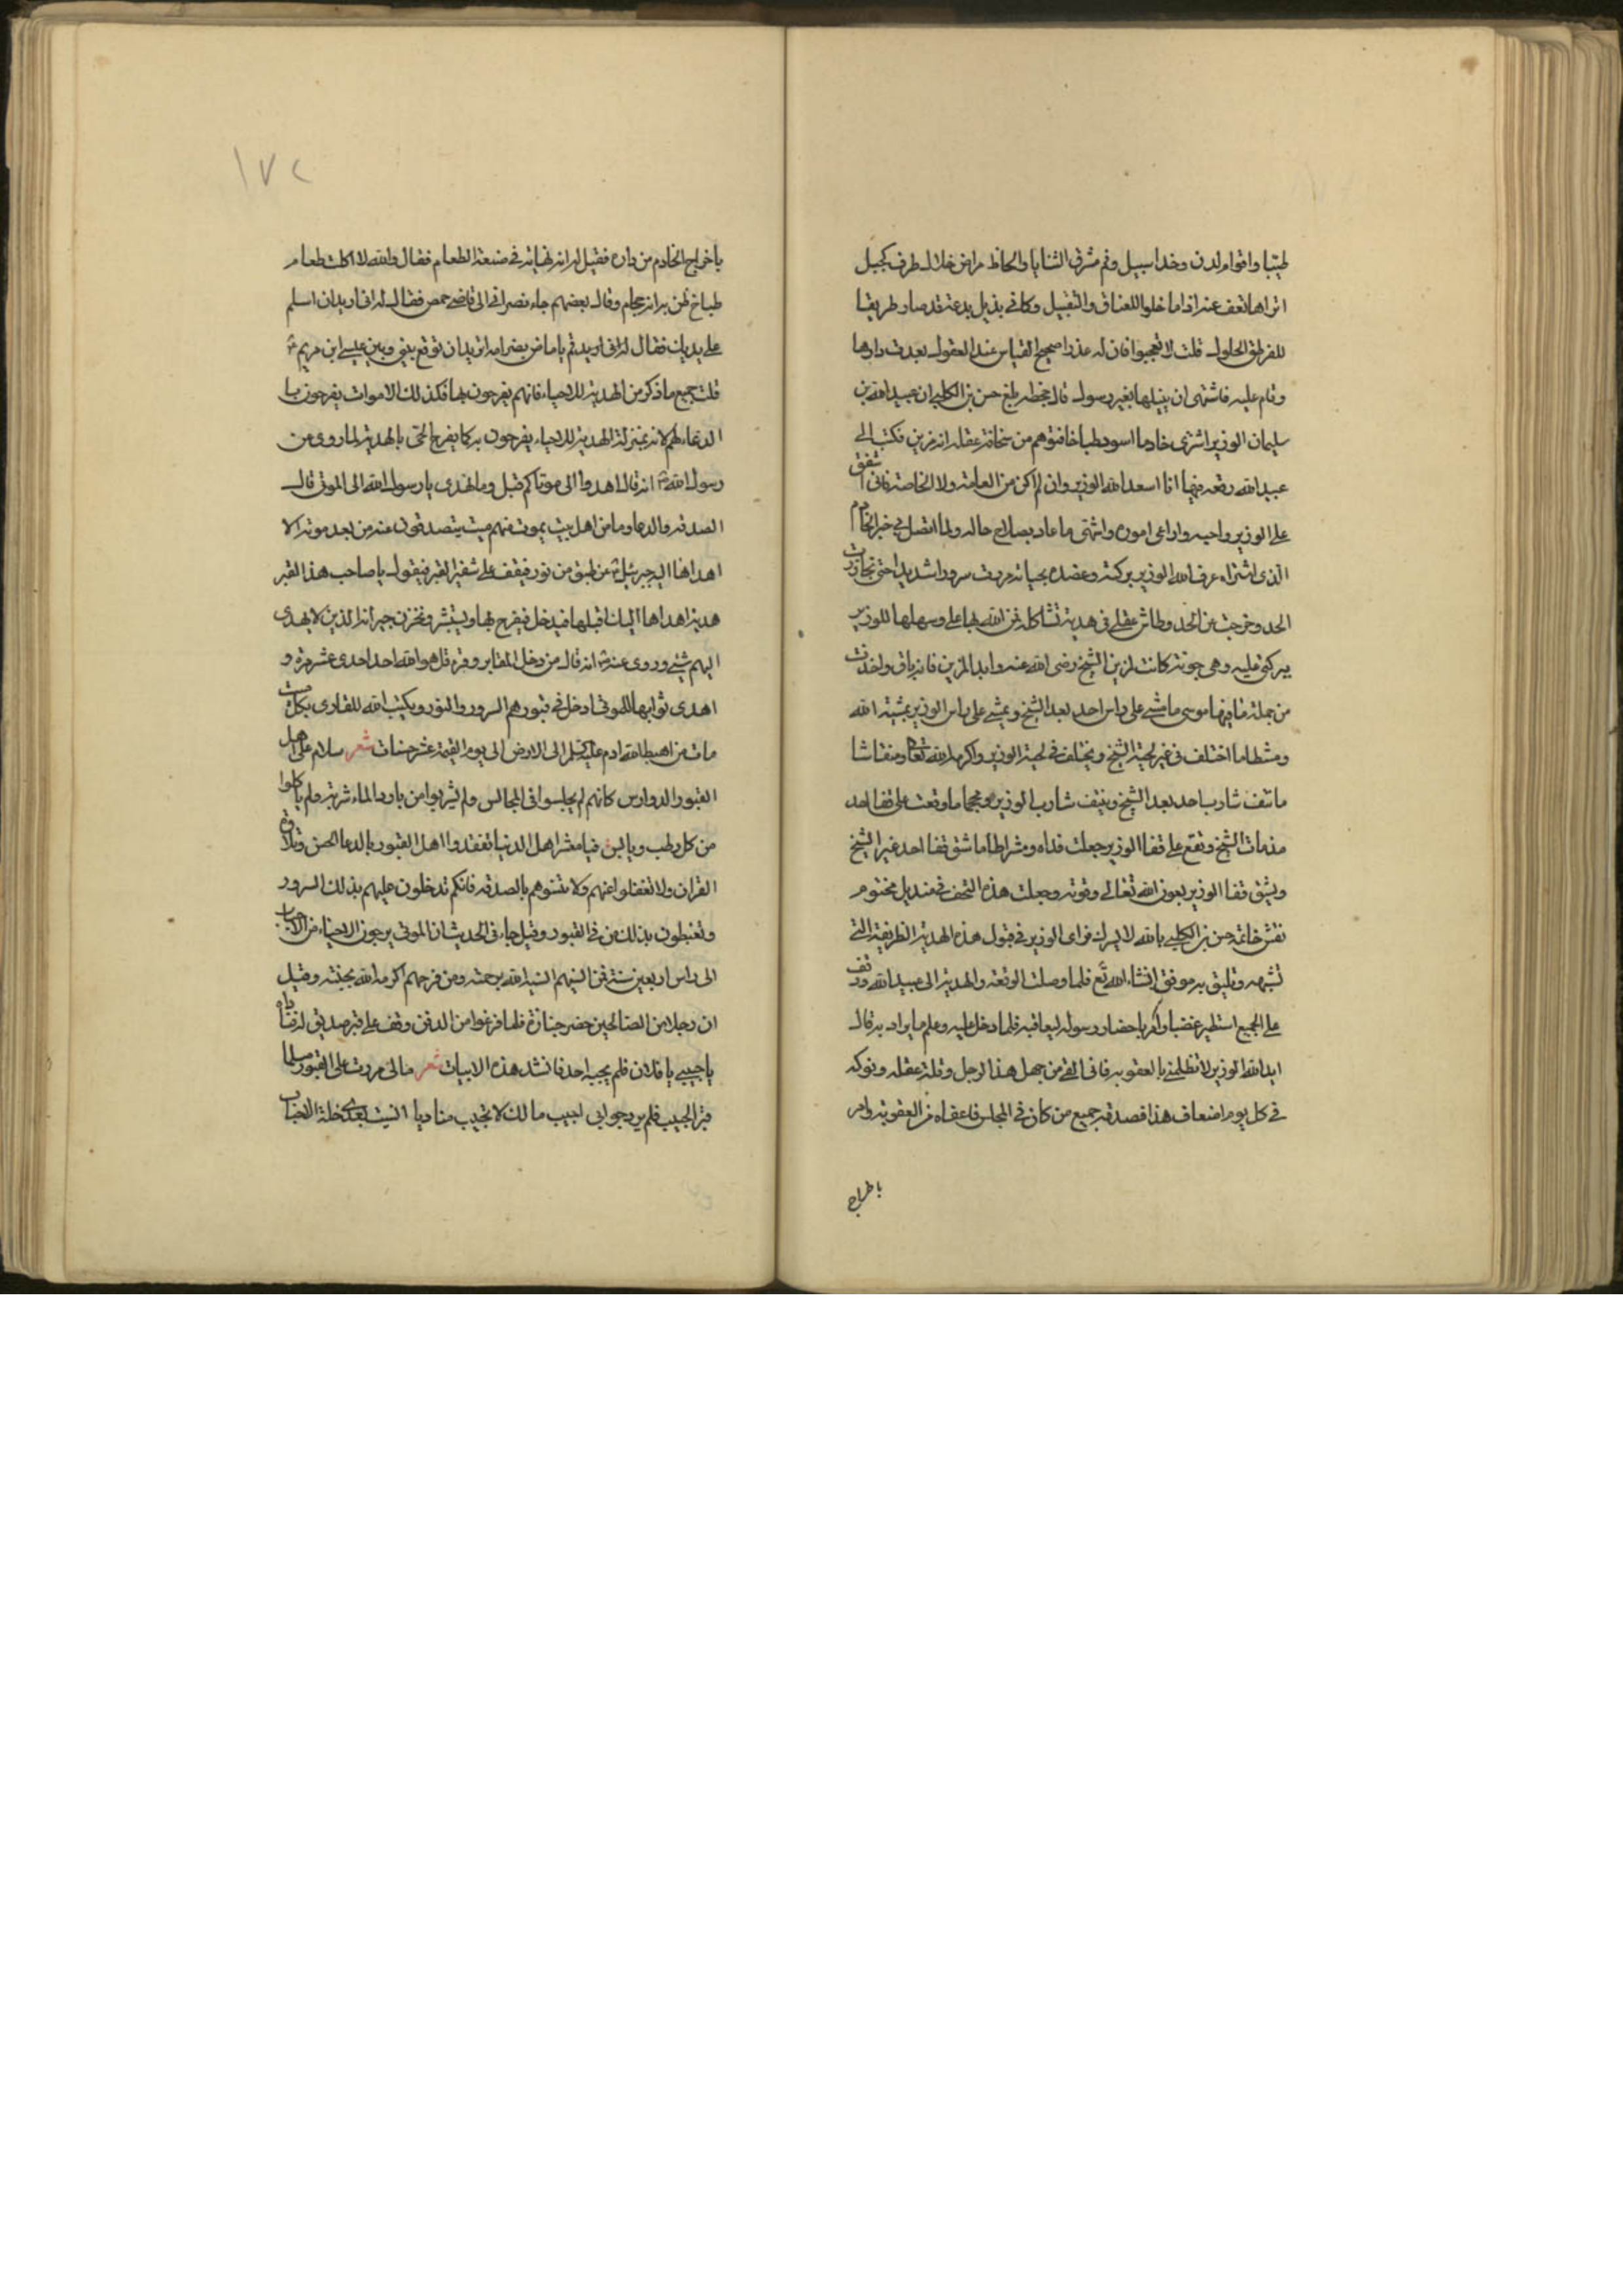 طيبا وقوام لدن وخد اسيل وفم مشرق الثنايا والحاظ مراض خلال طرف كحيل
اتراها تعف عنه اذا ما خلوا للعناق والتقبيل وكاني بذيل بدعة قد صار طريقا
للحلول قلت لا تعجبوا فان له عذرا صحيح القياس عند العقول بعدت دارها
وقام عليه فاشتهى ان ينيلها بغير رسول قال جحظه بلغ حسن بن الكلبي ان عبيد الله بن
سليمان الوزير اشترى خادما اسود طباخا فتوهم من سخافة عقله انه مزين فكتب الى
عبيد الله رقعة فيها انا اسعد الله الوزير وان لم اكن من العامة ولا الخاصة فاني اشفق
على الوزير واحبه واراعي اموره واشتهي ما عاد بصلاح حاله ولما اتصل بي خبر الخادم
الذي اشتراه عرف الله الوزير بركته وعضده بحياته سررت سرورا شديدا حتى تجاوزت
الحد وخرجت عن الحد وطاش عقلي في هدية تشاكله فمن الله بها علي وسهلها للوزير
بركتي عليه وهي جونة كانت لمزين الشيخ رضى الله عنه وابدا المزين فانه باق واخذت
من جملة ما فيها موسى ما مشى على راس احد بعد الشيخ ويمشي على راس الوزير بمشية الله
ومشطا ما اختلف في غير لحية الشيخ ويختلف في لحية الوزير اكرمه الله تعالى ومنقاشا
ما نتف شارب احد بعد الشيخ وينتف شارب الوزير ومحجما ما وقعت على قفا احد
مذ مات الشيخ وتقع على قفا الوزير جعلت فداه ومشراطا ما شق قفا احد غير الشيخ
ويشق قفا الوزير بعون الله تعالى وقوته وجعلت هذه التحف في منديل مختوم
نقش خاتمه حسن بن الكلبي بالله لا يشرك فراى الوزير في قبول هذه الهدية الظريفة التي
تشبهه وتليق به موفق انشاء الله تع فلما وصلت الرقعة والهدية الى عبيد الله ووقف
على الجميع استطير غضبا وامر باحضار رسوله ليعاقبه فلما دخل عليه وعلم ما يراد به قال
ايد الله الوزير لا تظلمني بالعقوبة فاني القى من جهل هذا الرجل وقلة عقله ونوكه
في كل يوم اضعاف هذا فصدقه جميع من كان في المجلس فاعفاه من العقوبة وامر
باخراج
١٧٢
باخراج الخادم من داره فقيل له انه نهاية في صنعة الطعام فقال والله لا اكلت طعام
طباخ ظن به انه حجام وقال بعضهم جاء نصراني الى قاضى حمص فقال له اني اريد ان اسلم
على يديك فقال له تريد ان توقع بيني وبين عيسى ابن مريم
قلت جميع ما ذكر من الهدية للاحياء فانهم يفرحون بها فكذلك الاموات يفرحون بها
الدعاء لهم لانه بمنزلة الهدية للاحياء يفرحون به كما يفرح الحى بالهدية لما روى عن
رسول الله ص انه قال اهدوا الى موتاكم قيل وما نهدى يا رسول الله الى الموتى قال
الصدقه والدعا وما من اهل بيت يموت منهم ميت يتصدقون عنه من بعد موته الا
اهداها اليه جبرئيل ع من طبق من نور فيقف على شفير القبر فيقول يا صاحب هذا القبر
هدية اهداها اليك اقبلها فيدخل فيفرح بها ويستبشر وتحزن جيرانه الذين لا يهدى
اليهم شئ وروى عنه ص انه قال من دخل المقابر وقرء قل هو الله احد احدى عشر مرة و
اهدى ثوابها للموتى ادخل في قبورهم السرور والنور ويكتب الله للقارى بكل ميت
مات من اهبط الله ادم الى الارض الى يوم القيمة عشر حسنات شعر سلام على اهل
القبور الدوارس كانهم لم يجلسوا في المجالس ولم يشربوا من بارد الماء شربة ولم ياكلوا
من كل رطب ويابس فيا معشر اهل الدنيا تفقدوا اهل القبور بالدعا الحسن وتلاوة
القران ولا تغفلوا عنهم ولا تنسوهم بالصدقه فانكم تدخلون عليهم بذلك السرور
وتغبطون بذلك من في القبور وقيل جاء في الحديث ان الموتى يرجون الاحياء من الاحباب
الى راس اربعين سنة فمن انسيهم انسيه الله برحمته ومن فرحهم اكرمه الله بجنته وقيل
ان رجلا من الصالحين حضر جنازة فلما فرغوا من الدفن وقف على قبر صديق له فناداه
يا حبيبي يا فلان فلم يجبه احد فانشد هذه الابيات شعر ما لي مررت على القبور مسلما
قبر الحبيب فلم يرد جوابي احبيب مالك لا تجيب مناديا انسيت بعدي خلة الاحباب